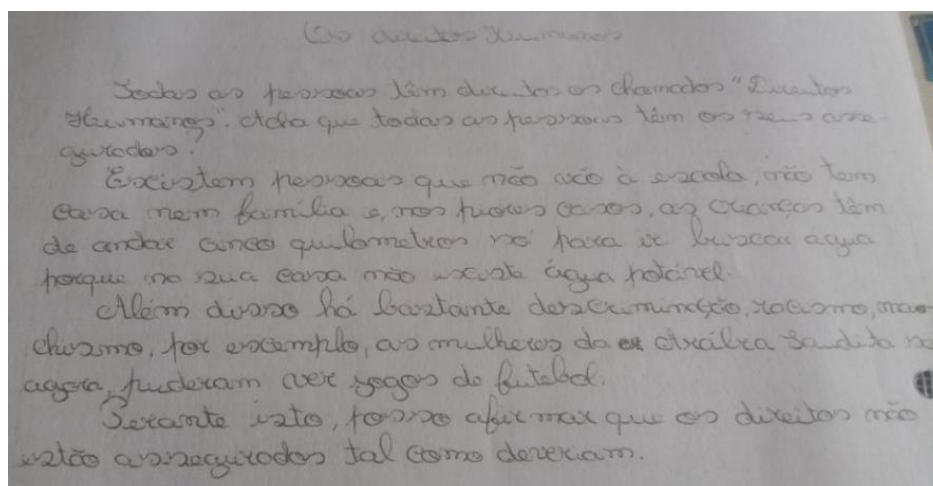 Os direitos Humanos
Todas as pessoas têm direitos os chamados "Direitos
Humanos". Acha que todas as pessoas têm os seus asse-
gurados?
Existem pessoas que não vão à escola, não tem
casa nem família e, nos piores casos, as crianças têm
de andar cinco quilometros só para ir buscar agua
porque na sua casa não existe água potável.
Além disso há bastante descriminação, racismo, ma-
chismo, por exemplo, as mulheres da Arábia Saudita só
agora, puderam ver jogos de futebol.
Perante isto, posso afirmar que os direitos não
estão assegurados tal como deveriam.